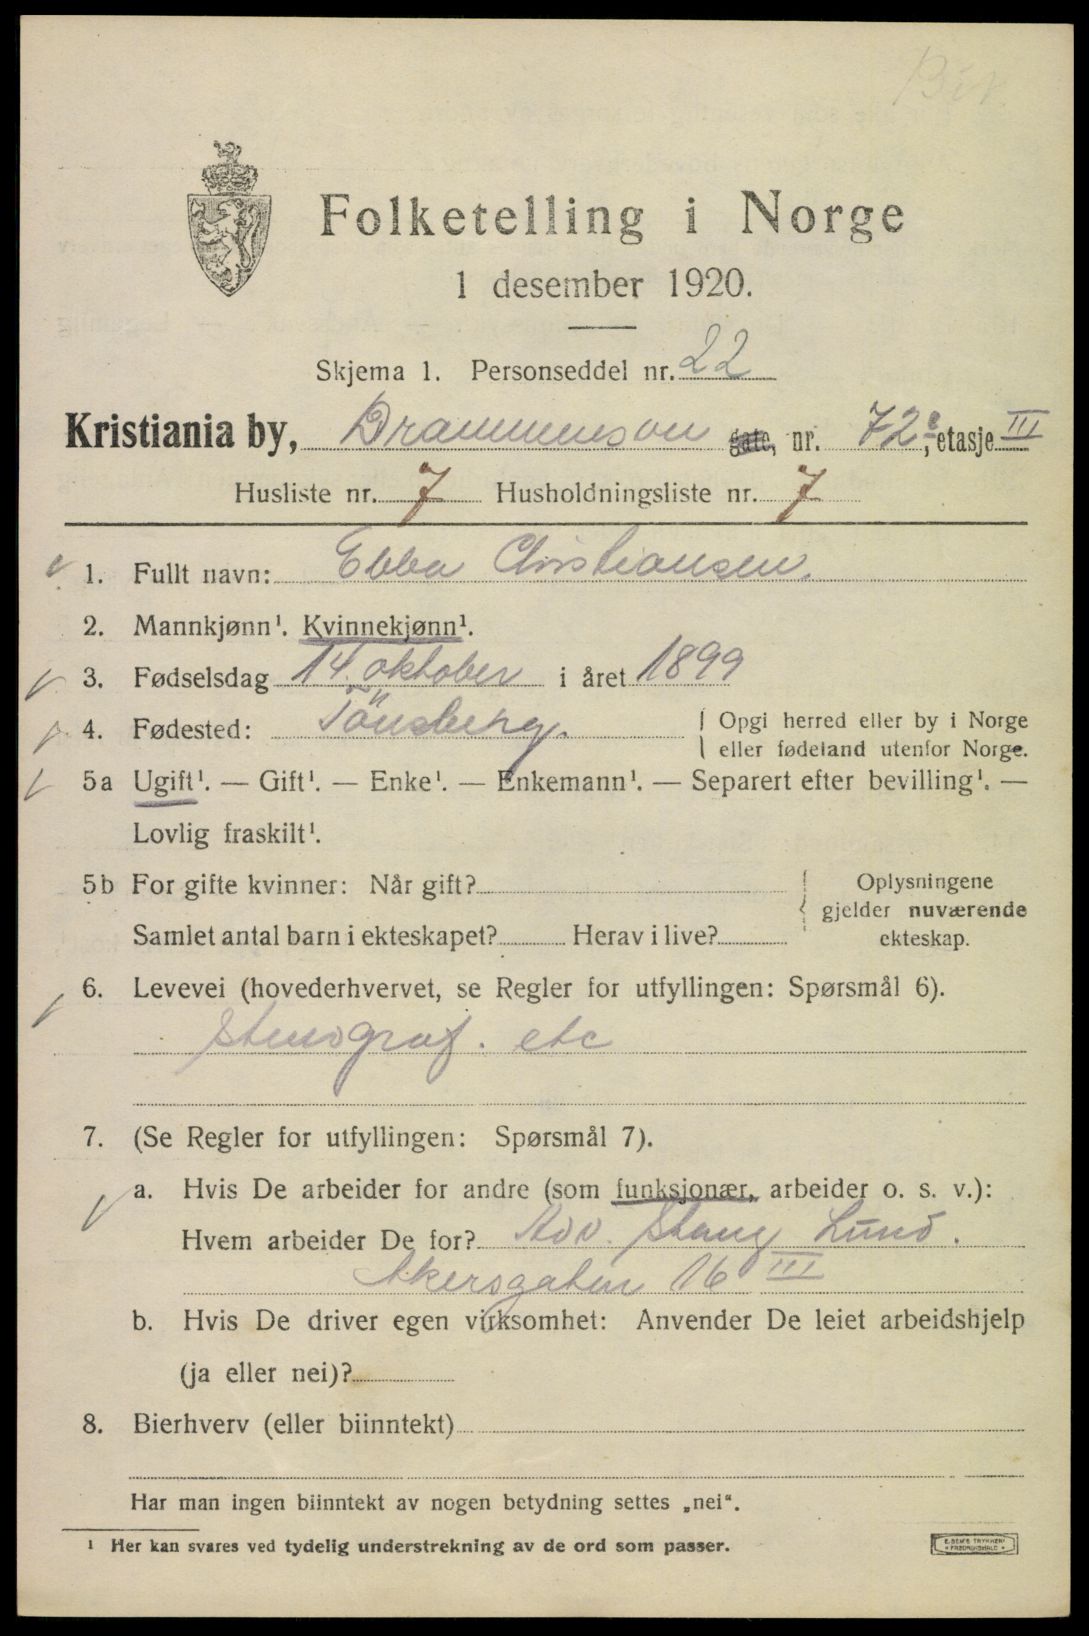 Folketelling i Norge
1 desember 1920.
Skjema 1. Personseddel nr. 22
Kristiania by, Drammensvn gate, nr. 72c, etasje III
Husliste nr. 7 Husholdningsliste nr. 7
1. Fullt navn: Ebba Christiansen.
2. Mannkjønn¹. Kvinnekjønn¹.
3. Fødselsdag 14. oktober i året 1899
4. Fødested: Tönsberg. { Opgi herred eller by i Norge
eller fødeland utenfor Norge.
5a Ugift¹. — Gift¹. — Enke¹. — Enkemann¹. — Separert efter bevilling¹. —
Lovlig fraskilt¹.
5b For gifte kvinner: Når gift? { Oplysningene
gjelder nuværende
Samlet antal barn i ekteskapet? Herav i live? ekteskap.
6. Levevei (hovederhvervet, se Regler for utfyllingen: Spørsmål 6).
Stenograf. etc
7. (Se Regler for utfyllingen: Spørsmål 7).
a. Hvis De arbeider for andre (som funksjonær, arbeider o. s. v.):
Hvem arbeider De for? Adv. Stang Lund.
Akersgaten 16 III
b. Hvis De driver egen virksomhet: Anvender De leiet arbeidshjelp
(ja eller nei)?
8. Bierhverv (eller biinntekt)
Har man ingen biinntekt av nogen betydning settes „nei“.
¹ Her kan svares ved tydelig understrekning av de ord som passer.